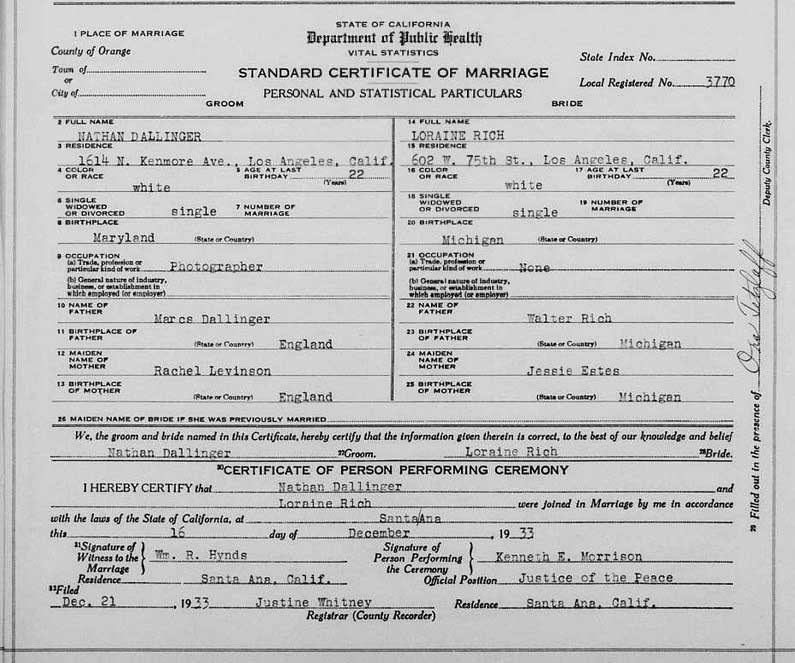 STATE OF CALIFORNIA
Department of Public Health
VITAL STATISTICS
STANDARD CERTIFICATE OF MARRIAGE
PERSONAL AND STATISTICAL PARTICULARS
1 PLACE OF MARRIAGE
County of Orange
Town of
or
City of
State Index No.
Local Registered No. 3770
GROOM
BRIDE
2 FULL NAME
NATHAN DALLINGER
3 RESIDENCE
1614 N. Kenmore Ave., Los Angeles, Calif.
4 COLOR OR RACE white
5 AGE AT LAST BIRTHDAY 22 (Years)
6 SINGLE WIDOWED OR DIVORCED single
7 NUMBER OF MARRIAGE
8 BIRTHPLACE
Maryland (State or Country)
9 OCCUPATION
(a) Trade, profession or particular kind of work Photographer
(b) General nature of industry, business, or establishment in which employed (or employer)
10 NAME OF FATHER Marcs Dallinger
11 BIRTHPLACE OF FATHER (State or Country) England
12 MAIDEN NAME OF MOTHER Rachel Levinson
13 BIRTHPLACE OF MOTHER (State or Country) England
14 FULL NAME
LORAINE RICH
15 RESIDENCE
602 W. 75th St., Los Angeles, Calif.
16 COLOR OR RACE white
17 AGE AT LAST BIRTHDAY 22 (Years)
18 SINGLE WIDOWED OR DIVORCED single
19 NUMBER OF MARRIAGE
20 BIRTHPLACE
Michigan (State or Country)
21 OCCUPATION
(a) Trade, profession or particular kind of work None
(b) General nature of industry, business, or establishment in which employed (or employer)
22 NAME OF FATHER Walter Rich
23 BIRTHPLACE OF FATHER (State or Country) Michigan
24 MAIDEN NAME OF MOTHER Jessie Estes
25 BIRTHPLACE OF MOTHER (State or Country) Michigan
26 MAIDEN NAME OF BRIDE IF SHE WAS PREVIOUSLY MARRIED
We, the groom and bride named in this Certificate, hereby certify that the information given therein is correct, to the best of our knowledge and belief
Nathan Dallinger 27 Groom. Loraine Rich 28 Bride.
30 CERTIFICATE OF PERSON PERFORMING CEREMONY
I HEREBY CERTIFY that Nathan Dallinger and
Loraine Rich were joined in Marriage by me in accordance
with the laws of the State of California, at Santa Ana
this 16 day of December, 1933
31 Signature of Witness to the Marriage Wm. R. Hynds
Signature of Person Performing the Ceremony Kenneth E. Morrison
Residence Santa Ana, Calif. Official Position Justice of the Peace
32 Filed
Dec. 21, 1933 Justine Whitney Residence Santa Ana, Calif.
Registrar (County Recorder)
29 Filled out in the presence of
Deputy County Clerk.